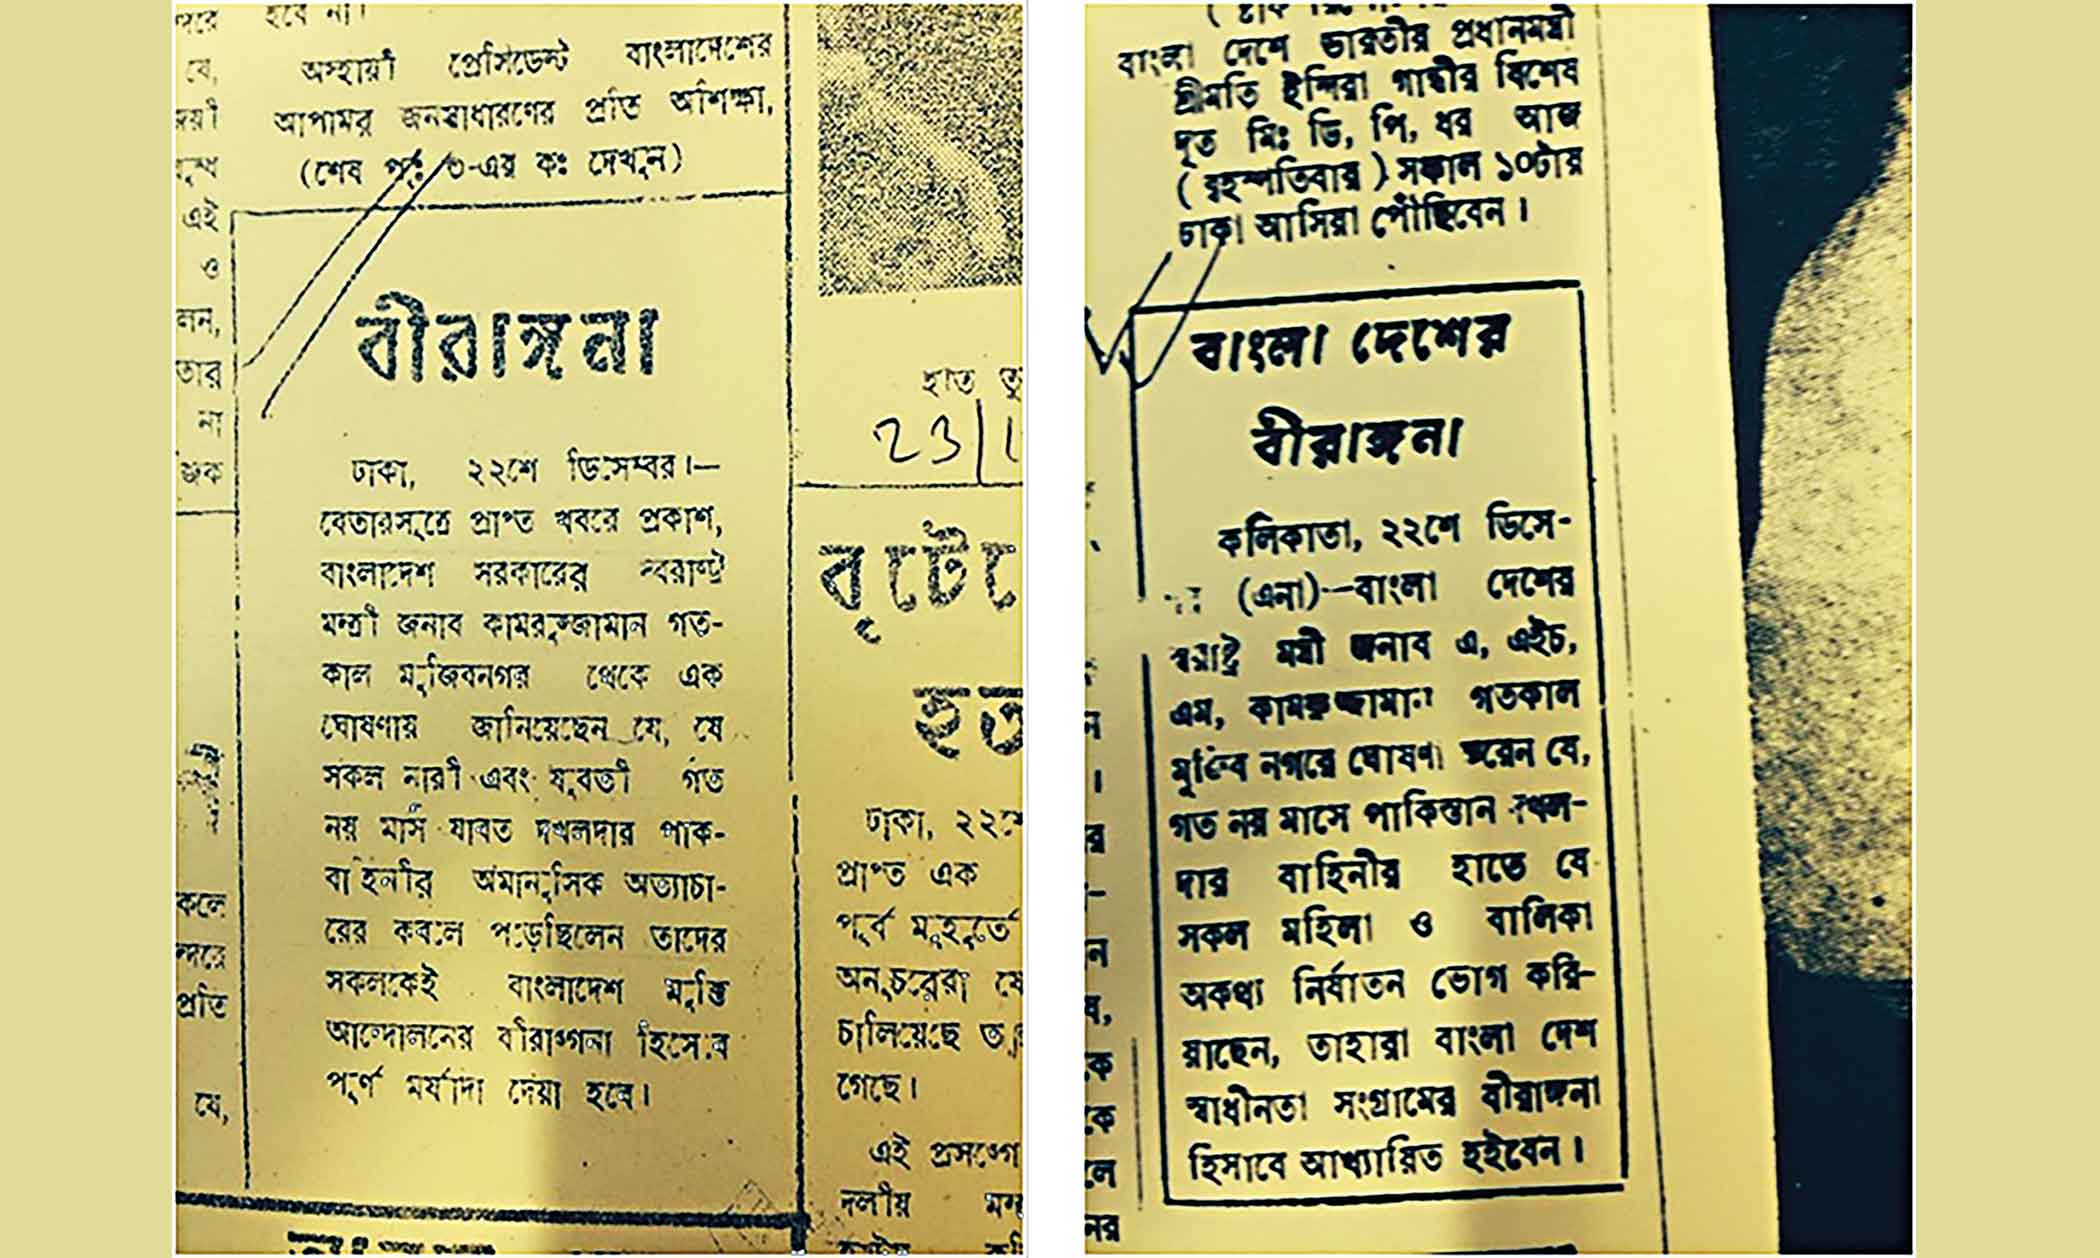 হবে না।
অস্থায়ী প্রেসিডেন্ট বাংলাদেশের
আপামর জনসাধারণের প্রতি অশিক্ষা,
(শেষ পৃঃ ৩-এর কঃ দেখুন)
বীরাঙ্গনা
ঢাকা, ২২শে ডিসেম্বর।—
বেতারসূত্রে প্রাপ্ত খবরে প্রকাশ,
বাংলাদেশ সরকারের স্বরাষ্ট্র
মন্ত্রী জনাব কামরুজ্জামান গত-
কাল মুজিবনগর থেকে এক
ঘোষণায় জানিয়েছেন যে, যে
সকল নারী এবং যুবতী গত
নয় মাস যাবত দখলদার পাক-
বাহিনীর অমানুসিক অত্যাচা-
রের কবলে পড়েছিলেন তাদের
সকলকেই বাংলাদেশ মুক্তি
আন্দোলনের বীরাঙ্গনা হিসেবে
পূর্ণ মর্যাদা দেয়া হবে।
পরে
যে,
এই
ও
লন,
তার
না
জিক
কলে
ন্দরে
প্রতি
যে,
হাত
23/1
বৃটে
ঢাকা, ২২শে
প্রাপ্ত এক
পূর্ব মুহূর্তে
অনুচরেরা যে
চালিয়েছে
গেছে।
এই প্রসঙ্গে
দলীয়
বাংলা দেশে ভারতীয় প্রধানমন্ত্রী
শ্রীমতি ইন্দিরা গান্ধীর বিশেষ
দূত মিঃ ডি, পি, ধর আজ
(বৃহস্পতিবার) সকাল ১০টায়
ঢাকা আসিয়া পৌঁছিবেন।
বাংলা দেশের
বীরাঙ্গনা
কলিকাতা, ২২শে ডিসে-
(এনা)—বাংলা দেশের
স্বরাষ্ট্র মন্ত্রী জনাব এ, এইচ,
এম, কামরুজ্জামান গতকাল
মুজিব নগরে ঘোষণা করেন যে,
গত নয় মাসে পাকিস্তান দখল-
দার বাহিনীর হাতে যে
সকল মহিলা ও বালিকা
অকথ্য নির্যাতন ভোগ করি-
য়াছেন, তাহারা বাংলা দেশ
স্বাধীনতা সংগ্রামের বীরাঙ্গনা
হিসাবে আখ্যায়িত হইবেন।